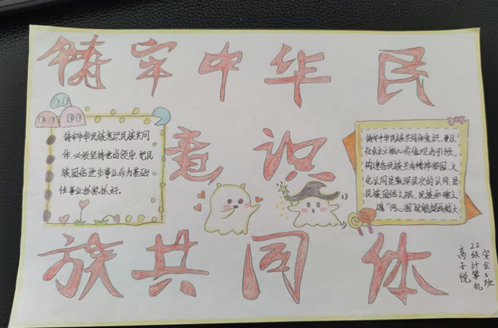 铸牢中华民
意识
族共同体
铸牢中华民族意识民族共同
体,必须坚持党的领导,把民
族团结进步事业作为基础
性事业抓紧抓好。
铸牢中华民族共同体意识,要以
社会主义核心价值观为引领,
构建各民族共有精神家园,文
化认同是最深层次的认同,是
民族团结之根、民族和睦之
安全2班
22级计算机
高子悦